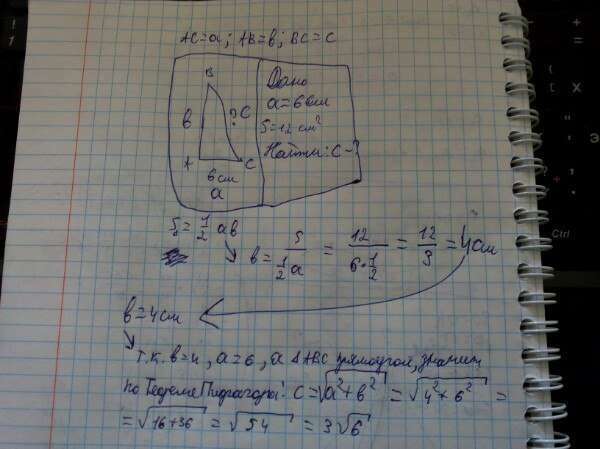 AC=a; AB=в; BC=c
B
в
? C
A
C
6 см
a
Дано
a=6 см
S=12 см²
Найти: C-?
S=1/2 aв
в= S/(1/2 a) = 12/(6·1/2) = 12/3 = 4 см
в=4 см
Т.к. в=4, a=6, а ΔABC прямоугол, значит
по Теореме Пифагора: C=√(a²+в²) = √(4²+6²) =
= √(16+36) = √54 = 3√6